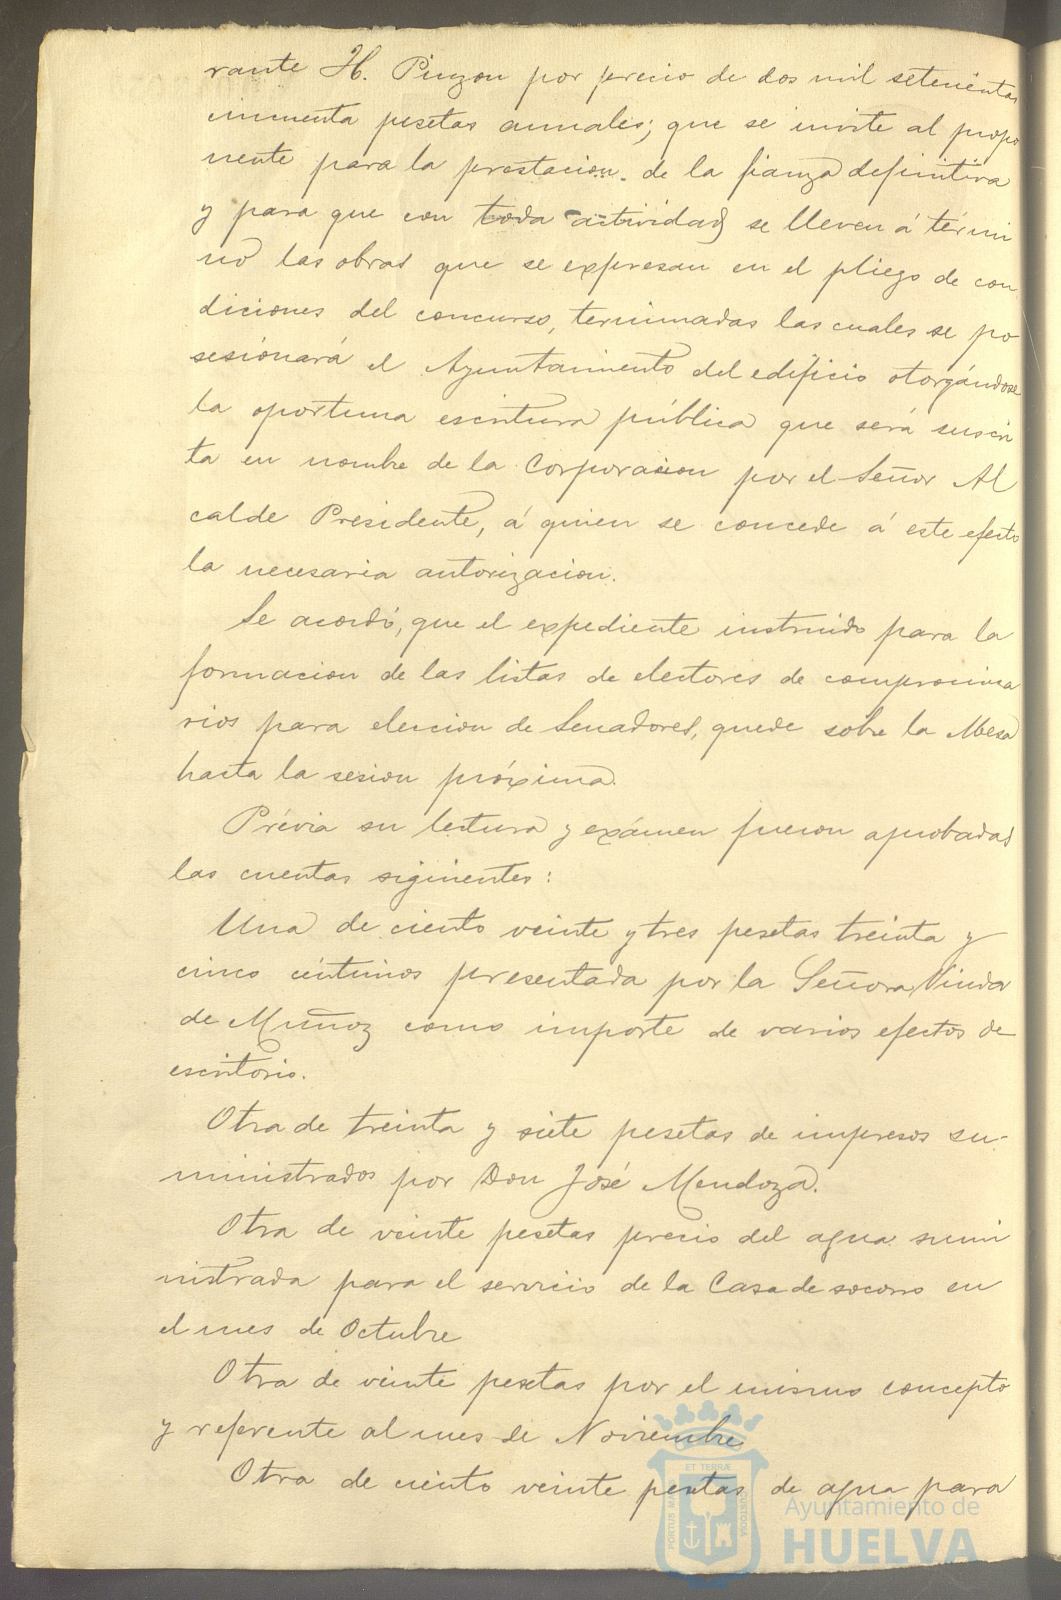 rante H. Pinzon por precio de dos mil setecientas
cincuenta pesetas annales; que se invite al propo
nente para la prestacion de la fianza definitiva
y para que con toda actividad se lleven á térmi
no las obras que se expresan en el pliego de con
diciones del concurso, terminadas las cuales se po
sesionará el Ayuntamiento del edificio otorgándose
la oportuna escritura pública que será suscri
ta en nombre de la Corporacion por el Señor Al
calde Presidente, á quien se concede á este efecto
la necesaria autorizacion.
Se acordó, que el expediente instruido para la
formacion de las listas de electores de compromisa
rios para eleccion de Senadores, quede sobre la Mesa
hasta la sesion próxima.
Prévia su lectura y exámen fueron aprobadas
las cuentas siguientes:
Una de ciento veinte y tres pesetas treinta y
cinco céntimos presentada por la Señora Viuda
de Muñoz como importe de varios efectos de
escritorio.
Otra de treinta y siete pesetas de impresos su-
ministrados por Don José Mendoza.
Otra de veinte pesetas precio del agua sumi
nistrada para el servicio de la Casa de socorro en
el mes de Octubre
Otra de veinte pesetas por el mismo concepto
y referente al mes de Noviembre
Otra de ciento veinte pesetas de agua para
PORTUS MARIS ET TERRÆ CUSTODIA
Ayuntamiento de
HUELVA